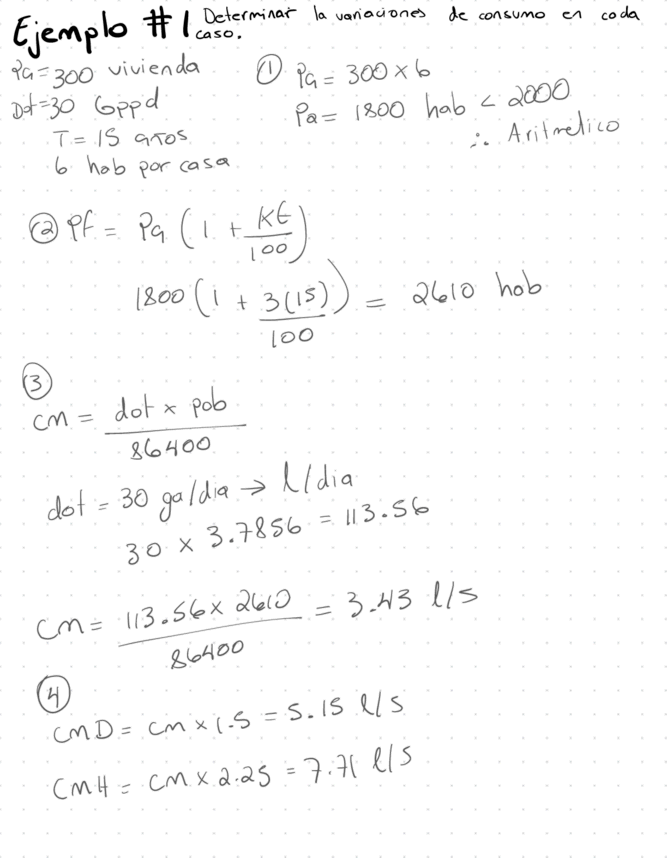 Ejemplo #1 Determinar la variaciones de consumo en cada
caso.
Pa = 300 vivienda
Dot = 30 Gppd
T = 15 años
6 hab por casa
① Pa = 300 x 6
Pa = 1800 hab < 2000
∴ Aritmetico
② Pf = Pa (1 + Kt/100)
1800 (1 + 3(15)/100) = 2610 hab
③
cm = dot x pob / 86400
dot = 30 ga/dia → l/dia
30 x 3.7856 = 113.56
cm = 113.56 x 2610 / 86400 = 3.43 l/s
④
CMD = cm x 1.5 = 5.15 l/s
CMH = cm x 2.25 = 7.71 l/s